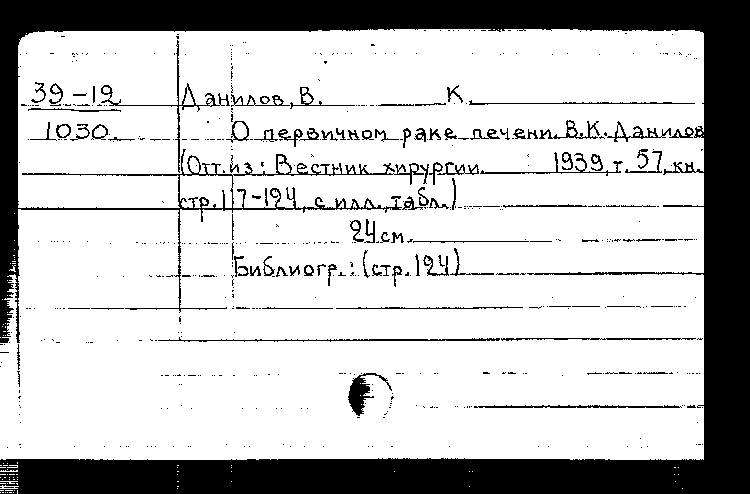 39-12 Данилов, В. К.
1030. О первичном раке печени. В.К. Данилов
(Отт. из: Вестник хирургии. 1939, т. 57, кн.
стр. 117-124, с илл., табл.)
24 см.
Библиогр.: (стр. 124)